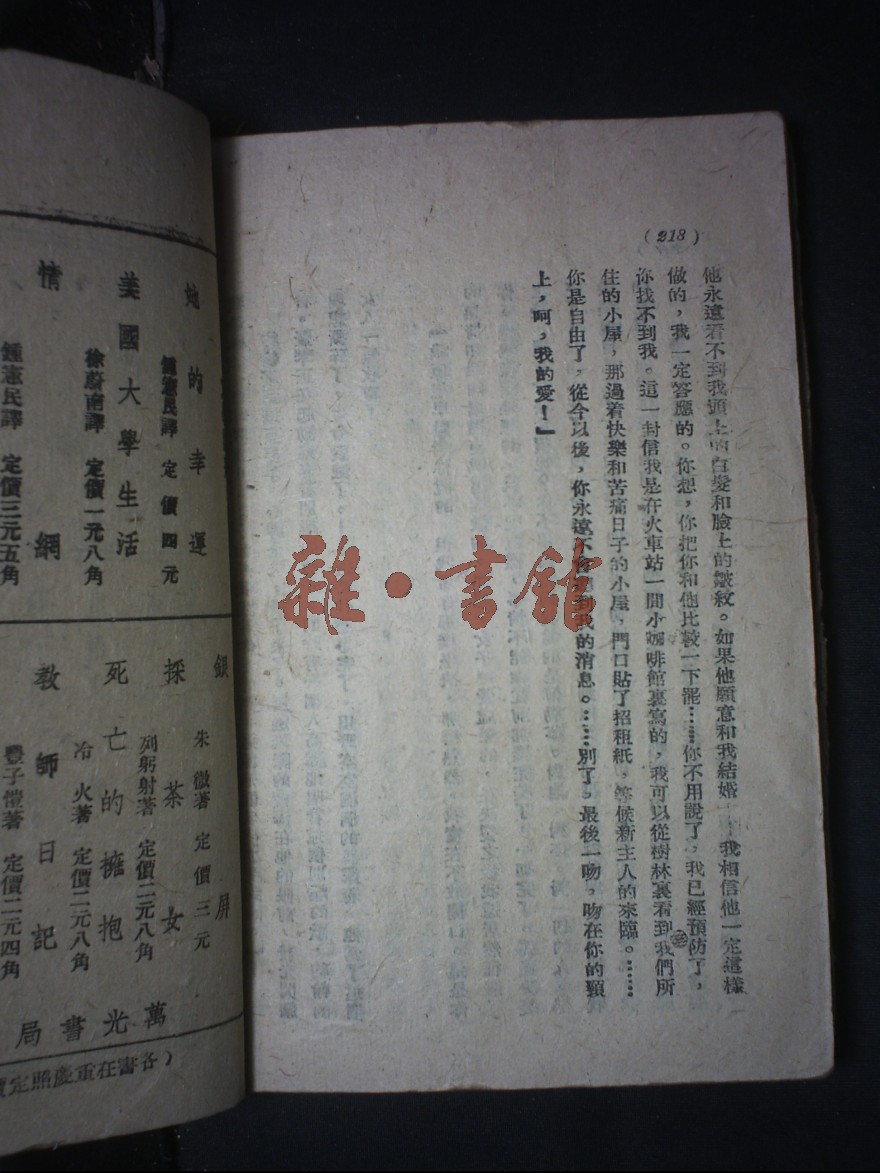 (213)
他永遠看不到我頭上的白髮和臉上的皺紋。如果他願意和我結婚——我相信他一定這樣
做的，我一定答應的。你想，你把你和他比較一下罷……你不用說了，我已經預防了，
你找不到我。這一封信我是在火車站一間小咖啡館裏寫的，我可以從樹林裏看到我們所
住的小屋，那過着快樂和苦痛日子的小屋，門口貼了招租紙，等候新主人的來臨。……
你是自由了，從今以後，你永遠不會聽到我的消息。……別了。最後一吻，吻在你的頸
上，呵，我的愛！」
雜·書館
她的幸運
鍾憲民譯 定價四元
美國大學生活
徐蔚南譯 定價一元八角
情網
鍾憲民譯 定價三元五角
銀屏
朱微著 定價三元
採茶女
列躬射著 定價二元八角
死亡的擁抱
冷火著 定價二元八角
教師日記
豐子愷著 定價二元四角
萬光書局
(各書在重慶照定